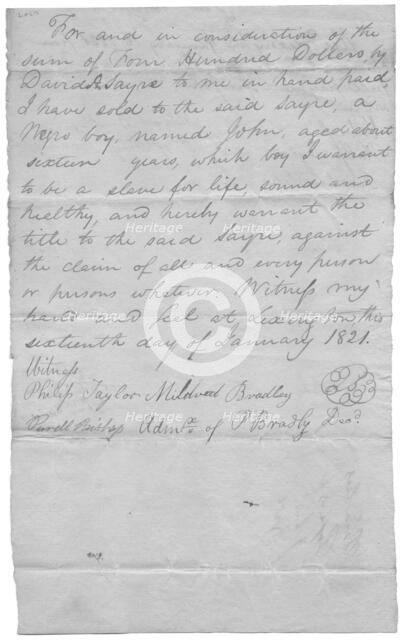 For and in consideration of the
sum of Four Hundred Dollers, by
David A Sayre to me in hand paid,
I have sold to the said Sayre, a
Negro boy, named John, aged about
sixteen years, which boy I warrant
to be a slave for life, sound and
healthy, and hereby warrant the
title to the said Sayre, against
the claim of all and every person
or persons whatever. Witness my
hand and seal at Lexington this
sixteenth day of January 1821.
Witness
Philip Taylor Mildred Bradley
Bishop Admx. of P Bradly Decd.
Heritage
Heritage
Heritage
Heritage
Heritage
Heritage
Heritage
Heritage
Heritage